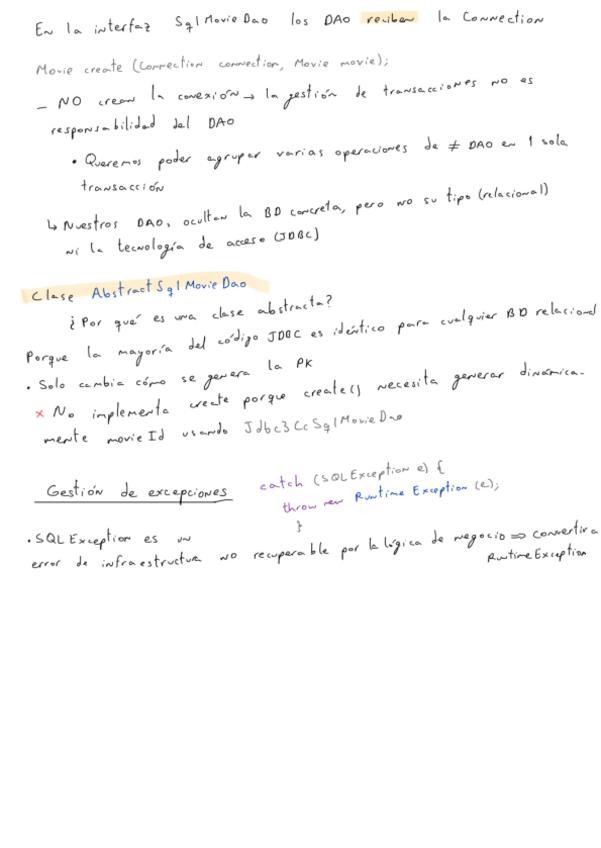 En la interfaz SqlMovieDao los DAO reciben la Connection
Movie create (Connection connection, Movie movie);
- NO crean la conexión → la gestión de transacciones no es
responsabilidad del DAO
• Queremos poder agrupar varias operaciones de ≠ DAO en 1 sola
transacción
↳ Nuestros DAO, ocultan la BD concreta, pero no su tipo (relacional)
ni la tecnología de acceso (JDBC)
Clase AbstractSqlMovieDao
¿Por qué es una clase abstracta?
Porque la mayoría del código JDBC es idéntico para cualquier BD relacional
• Solo cambia cómo se genera la PK
× No implementa create porque create() necesita generar dinámica-
mente movieId usando Jdbc3CcSqlMovieDao
Gestión de excepciones
catch (SQLException e) {
throw new RuntimeException (e);
}
• SQLException es un
error de infraestructura no recuperable por la lógica de negocio ⇒ convertir a
RuntimeException